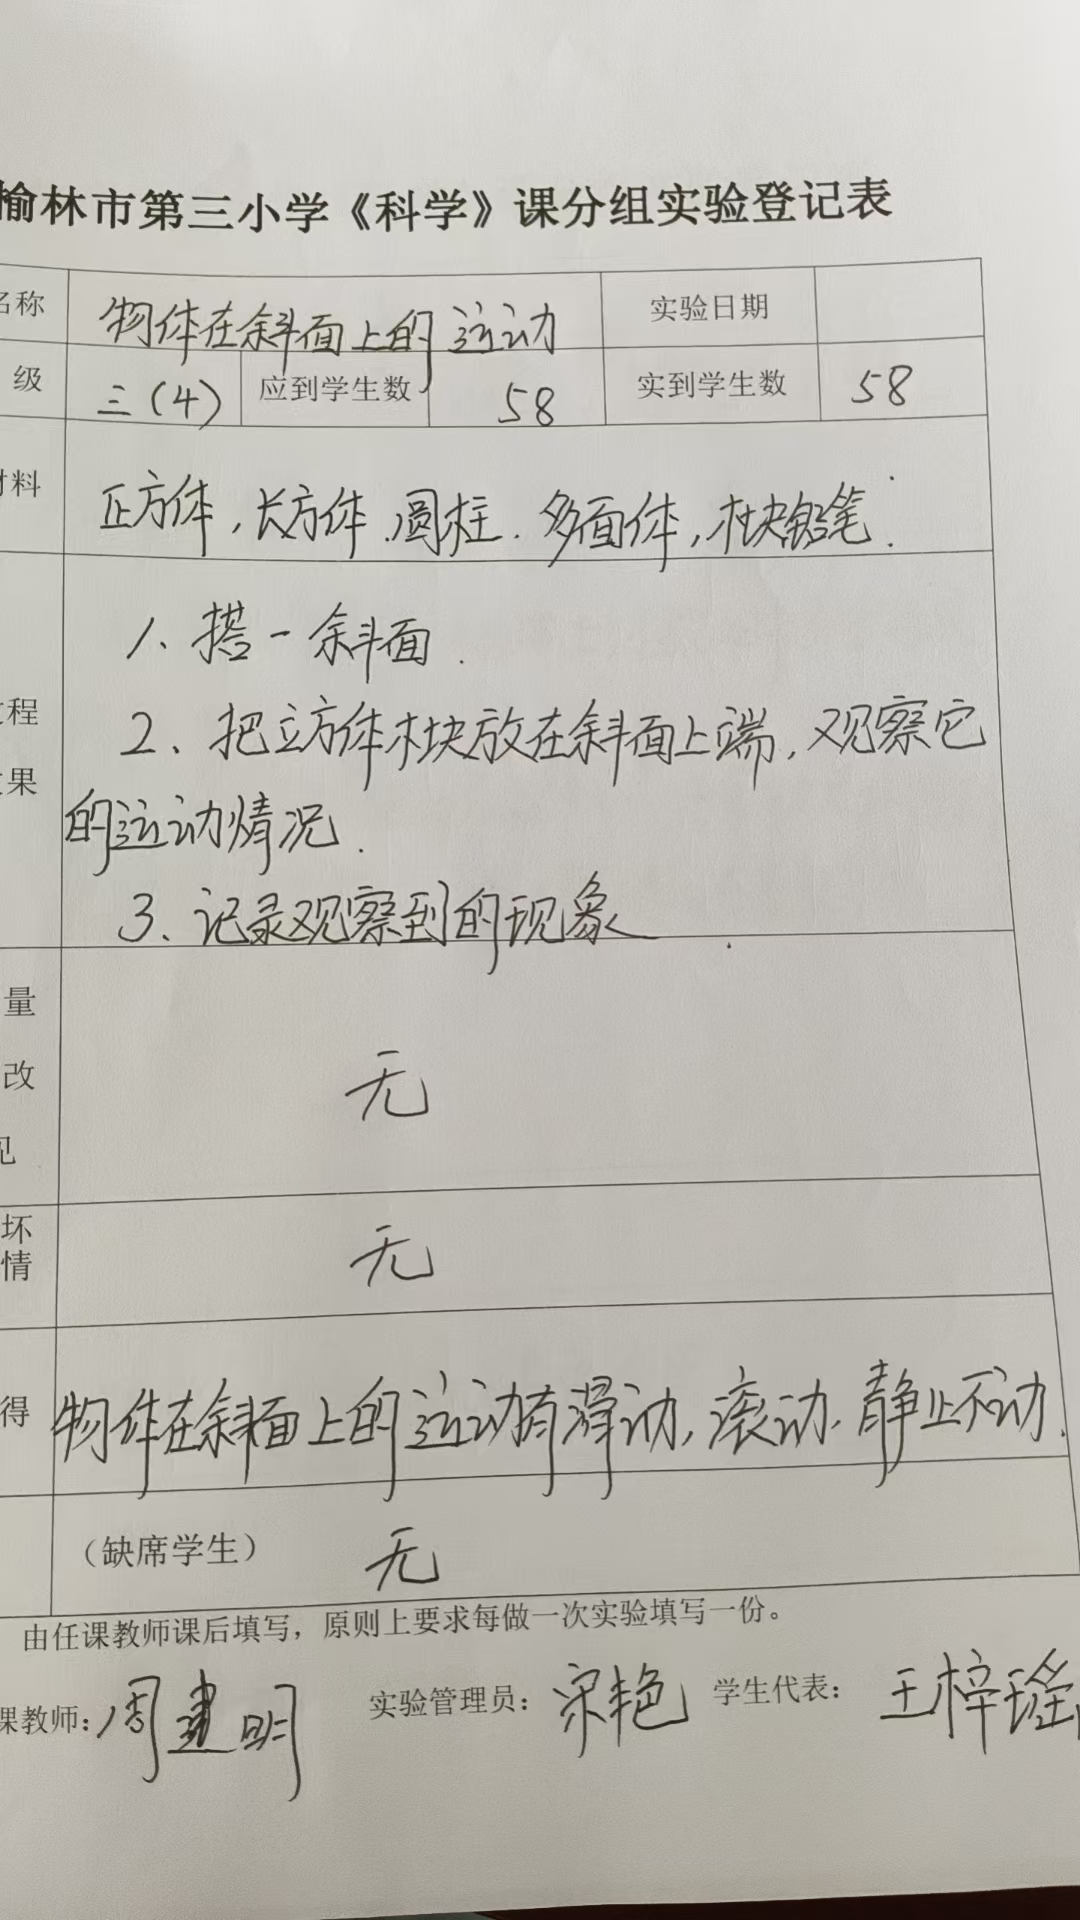 榆林市第三小学《科学》课分组实验登记表
名称 物体在斜面上的运动 实验日期
级 三(4) 应到学生数 58 实到学生数 58
材料 正方体,长方体、圆柱、多面体,木块铅笔.
1、搭一斜面.
过程 2、把立方体木块放在斜面上端,观察它
果 的运动情况.
3、记录观察到的现象
量
改 无
见
坏 无
情
得 物体在斜面上的运动有滑动,滚动、静止不动.
(缺席学生) 无
由任课教师课后填写,原则上要求每做一次实验填写一份。
课教师: 周建明 实验管理员: 宋艳 学生代表: 王梓瑶